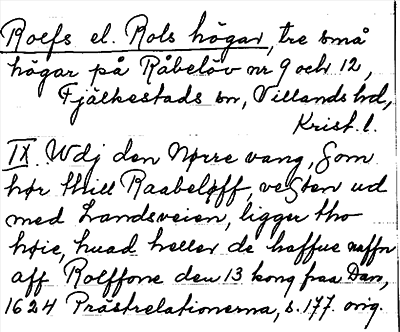 Roefs el. Rols högar, tre små
högar på Råbelöv nr 9 och 12,
Fjälkestads sn, Villands hd,
Krist. l.
IX. Wdj den Nørre vang, Som
hør thill Raabeløff, vesten ud
med Landsveien, ligger tho
høie, huad heller de haffue naffn
aff Rolffone den 13 kong fraa Dan,
1624 Prästrelationerna, s. 177. orig.